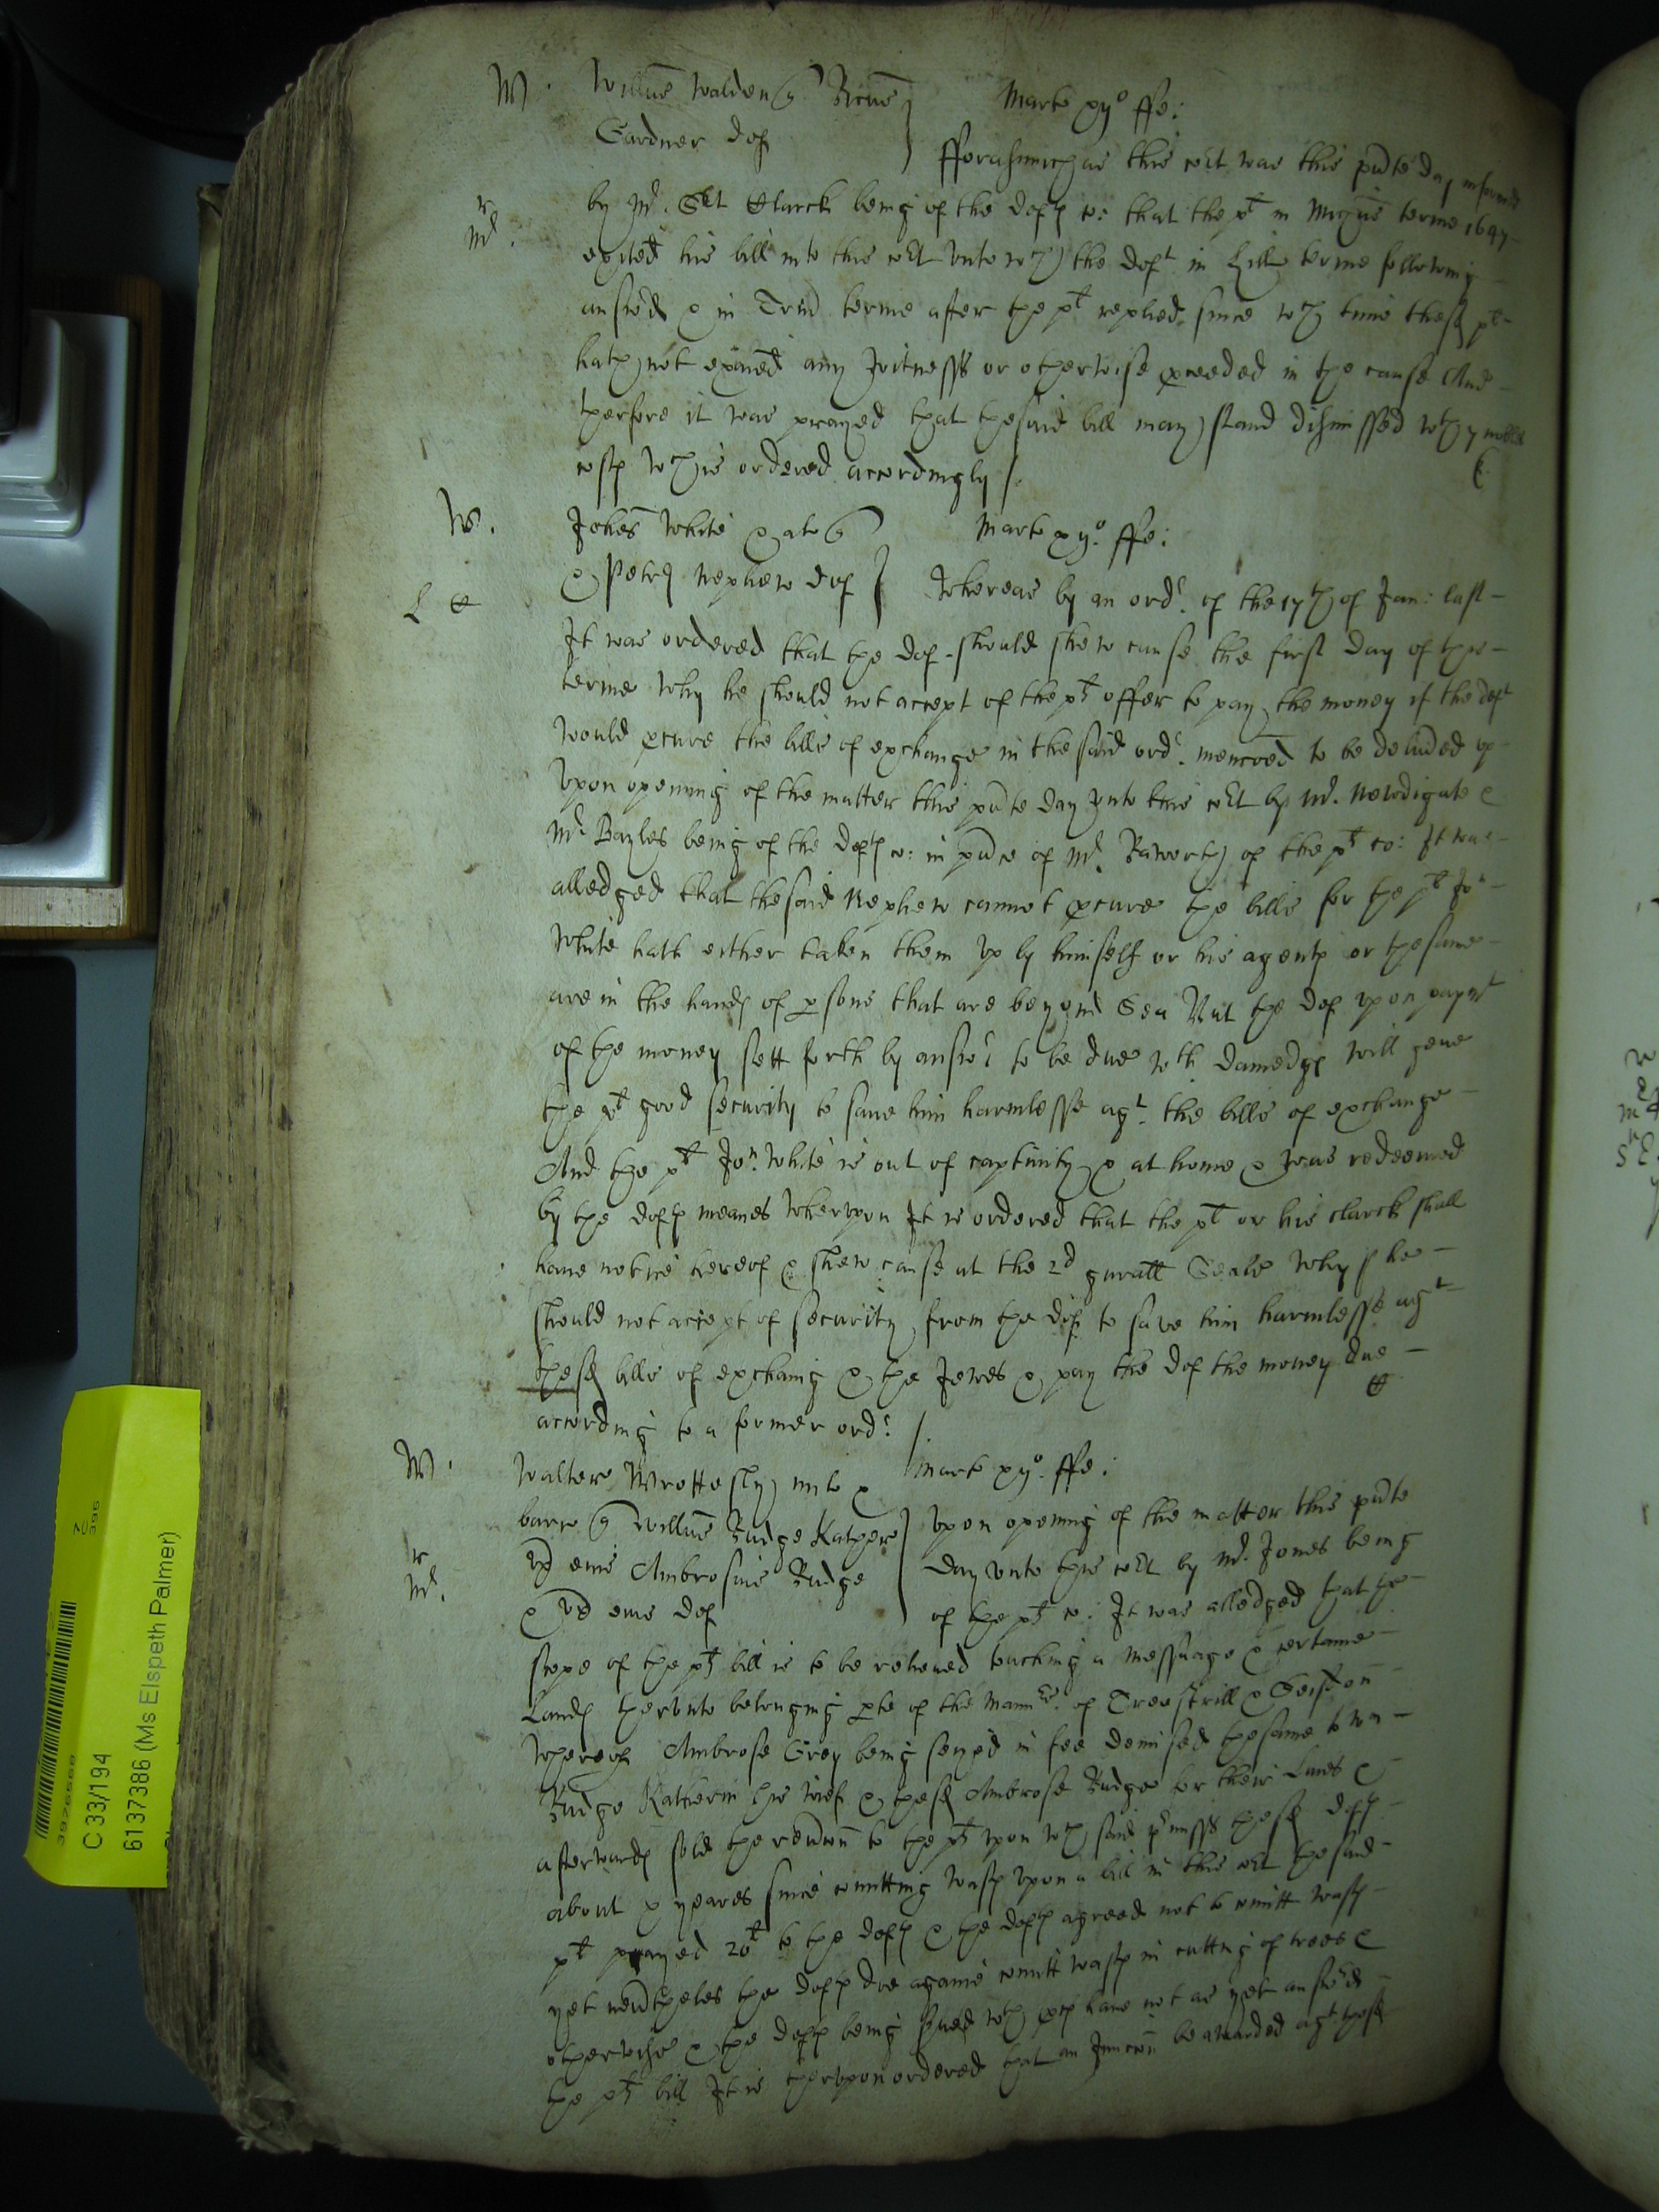 W. Willus Walden q Ricus } Marte xijo ffe:
Gardner def
fforasmuch as this cort was this pnte day informed
r
Mr. by Mr. Set Clarck being of the defts co: that the plt in Michis terme 1647
exited his bill into this cort vnto wch the deft in Hill terme following
answed & in Trin terme after the plt replied since wch time these plt
hath not exaied any witnesses or otherwise pceeded in the cause And
therfore it was prayed that the said bill may stand dismissed wth
costs wch is ordered accordingly /.
W. Johes White & al q Marte xijo. ffe:
& Petrs Nephew def } Whereas by an ordr. of the 17th of Jan: last
L
It was ordered that the def should shew cause the first day of this
terme why he should not accept of the plts offer to pay the money if the deft
would pcure the bills of exchange in the said ordr. mencoed to be deliued vp
Vpon opening of the matter this pnte day vnto this cort by Mr. Newdigate &
Mr Bayles being of the defts co: in pnce of Mr. Raworth of the plts co: It was
alledged that the said Nephew cannot pcure the bills for the plt Jon
White hath either taken them vp by himself or his agents or the same
are in the hands of psons that are beyond Sea But the def vpon paymt
of the money sett forth by answr to be due wth damedgs will geue
the plt good security to saue him harmlesse agt. the bills of exchange
And the plt Jon. White is out of captiuity & at home & was redeemed
by the defts meanes wherevpon It is ordered that the plt or his clarck shall
haue notice hereof & shew cause at the 2d gnrall Seale why he
should not accept of security from the def to saue him harmlesse agt
these bills of exchang & the Jewes & pay the def the money due
according to a former ordr. /.
W. Walter Wrottesly mil & Marte xijo. ffe:
barr q Willus Rudge Kather } Vpon opening of the matter this pnte
vx eius Ambrosius Rudge day vnto this cort by Mr. Jones being
r
Mr.
& vx eius def of the plts co: It was alledged that the
scope of the plts bill is to be releiued touching a messuage & certaine
Lands thervnto belonging pte of the mannor. of &
wherof Ambrose Grey being seized in fee demised the same to Wm
Rudge Katherin his wief & these Ambrose Rudge for their Liues &
afterwards sold the reucon to the plts vpon wch said pmisses these defts
about x yeares since comitting wast vpon a bill in this cort the said
plt payed 20l to the defts & the defts agreed not to comitt wast
yet neutheles the defts doe againe comitt wast in cutting of trees &
otherwise & the defts being serued wth pces haue not as yet answed
the plts bill It is thervpon ordered that an Juncon be awarded agt these
C 33/194
6137386 (Ms Elspeth Palmer)